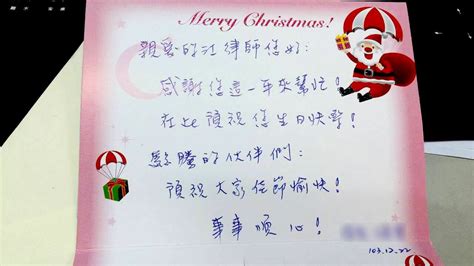 Merry Christmas!
親愛的江律師您好:
感謝您這一年來幫忙!
在此預祝您生日快樂!
的伙伴們:
預祝大家佳節愉快!
事事順心!
103.12.22